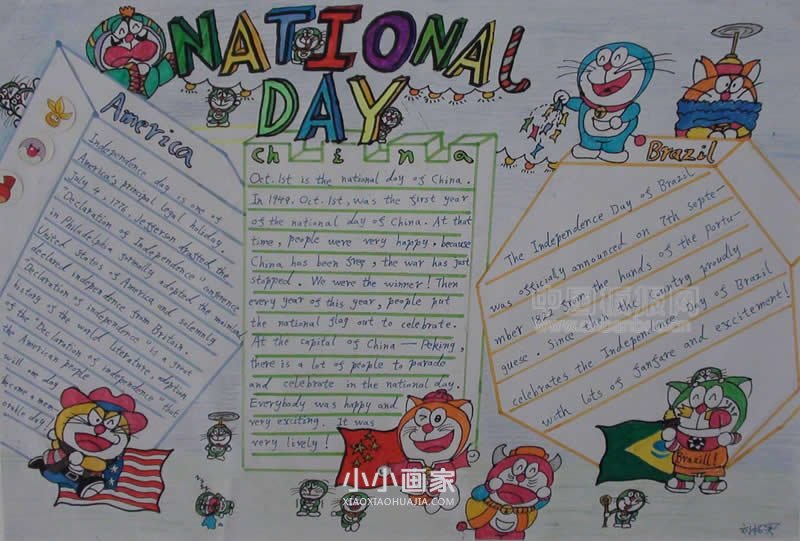 NATIONAL
DAY
America
Independence day is one of
America's principal legal holiday.
July 4, 1776. Jefferson drafted the
"Declaration of Independence" conference
in Philadelphia formally adopted the mainland
United States of America and solemnly
declared independence from Britain.
"Declaration of independence" is a great
history of the world literature. adoption
of the "Declaration of independence" that
the American people
will one day
become a mem-
orable day!
China
Oct. 1st is the national day of China.
In 1949. Oct. 1st, was the first year
of the national day of China. At that
time, people were very happy, because
China has been free, the war has just
stopped. We were the winner! Then
every year of this year, people put
the national flag out to celebrate.
At the capital of China — Peking,
there is a lot of people to parado
and celebrate in the national day.
Everybody was happy and
very exciting. It was
very lively!
Brazil
The Independence Day of Brazil
was officially announced on 7th septe-
mber 1822 from the hands of the Portu-
guese. Since then the country proudly
celebrates the Independence Day of Brazil
with lots of fanfare and excitement!
Brazil!
小小画家
XIAOXIAOHUAJIA.COM